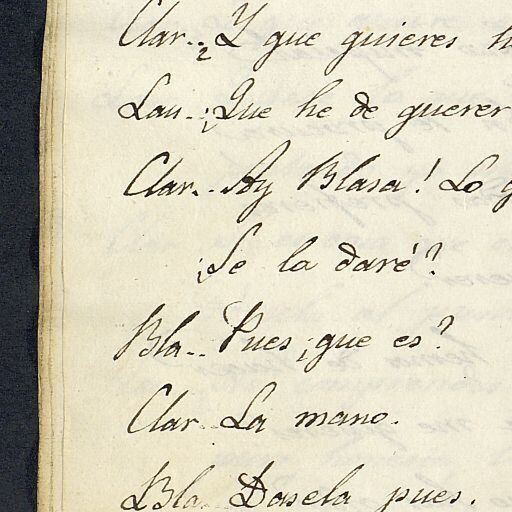 Clar.. ¿Y que quieres
Lau.. ¡Que he de querer
Clar.. Ay Blasa! Lo
¿Se la daré?
Bla.. Pues ¿que es?
Clar.. La mano.
Bla.. Dasela pues.